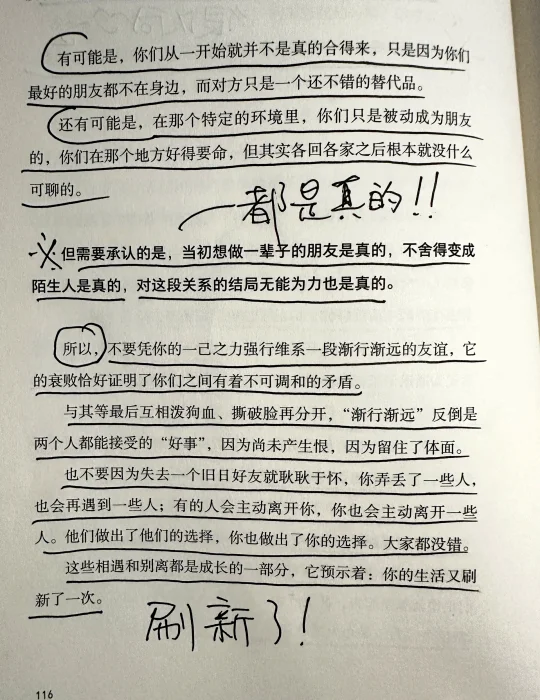 有可能是，你们从一开始就并不是真的合得来，只是因为你们
最好的朋友都不在身边，而对方只是一个还不错的替代品。
还有可能是，在那个特定的环境里，你们只是被动成为朋友
的，你们在那个地方好得要命，但其实各回各家之后根本就没什么
可聊的。
都是真的!!
※但需要承认的是，当初想做一辈子的朋友是真的，不舍得变成
陌生人是真的，对这段关系的结局无能为力也是真的。
所以，不要凭你的一己之力强行维系一段渐行渐远的友谊，它
的衰败恰好证明了你们之间有着不可调和的矛盾。
与其等最后互相泼狗血、撕破脸再分开，“渐行渐远”反倒是
两个人都能接受的“好事”，因为尚未产生恨，因为留住了体面。
也不要因为失去一个旧日好友就耿耿于怀，你弄丢了一些人，
也会再遇到一些人；有的人会主动离开你，你也会主动离开一些
人。他们做出了他们的选择，你也做出了你的选择。大家都没错。
这些相遇和别离都是成长的一部分，它预示着：你的生活又刷
新了一次。
刷新了!
116